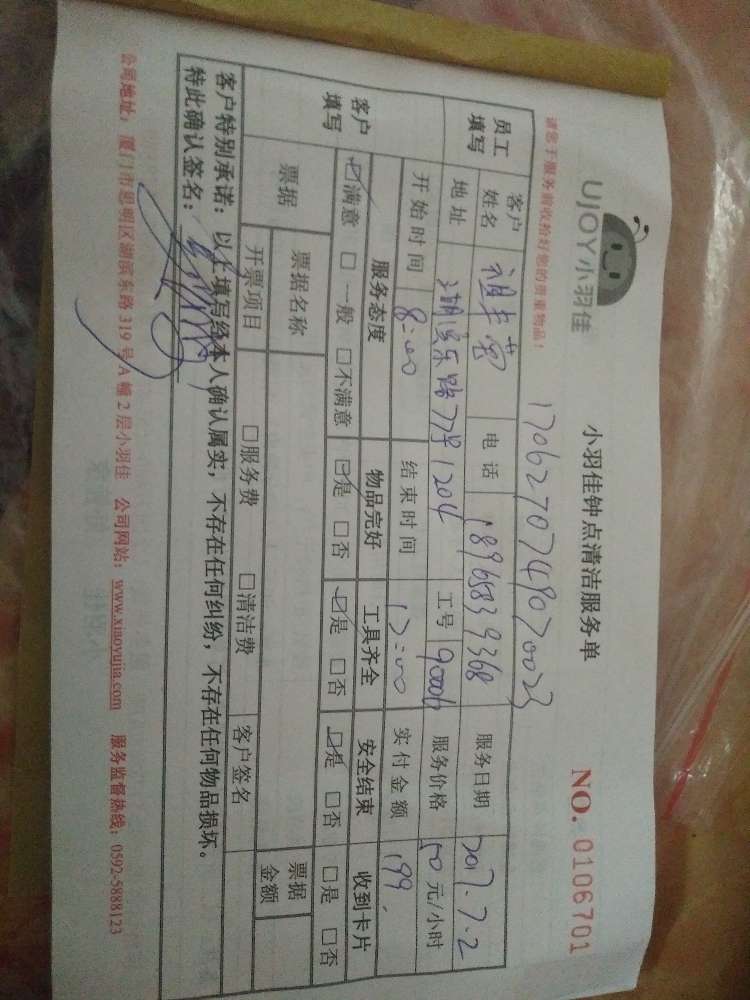 UJOY小羽佳
小羽佳钟点清洁服务单
NO. 0106701
请您于服务前收拾好您的贵重物品!
1706270749070023
员工填写 客户姓名 电话 18965839368 服务日期 2017.7.2
地址 湖滨东路77号1204 工号 90006 服务价格 50元/小时
开始时间 8:00 结束时间 12:00 实付金额 199
客户填写 服务态度 物品完好 工具齐全 安全结束 收到卡片
☑满意 □一般 □不满意 ☑是 □否 ☑是 □否 ☑是 □否 □是 □否
票据 票据名称 客户签名 票据金额
开票项目 □服务费 □清洁费
客户特别承诺:以上填写经本人确认属实,不存在任何纠纷,不存在任何物品损坏。
特此确认签名:
公司地址:厦门市思明区湖滨东路319号A幢2层小羽佳 公司网站:www.xiaoyujia.com 服务监督热线:0592-5888123